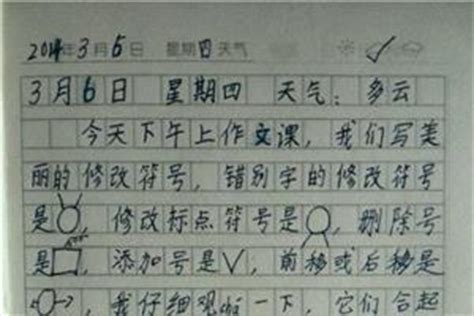 2014年3月6日 星期四 天气
3月6日 星期四 天气：多云
今天下午上作文课，我们写美
丽的修改符号，错别字的修改符号
是○，修改标点符号是○，删除号
是□，添加号是√；前移或后移是
○，我仔细观cha一下，它们合起